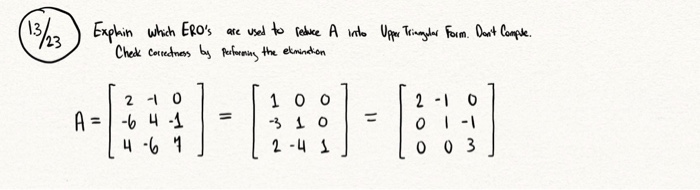 13/23
Explain which ERO's are used to reduce A into Upper Triangular Form. Don't Compute.
Check correctness by performing the elimination
A = [ 2 -1 0 ] = [ 1 0 0 ] = [ 2 -1 0 ]
[ -6 4 -1 ] [ -3 1 0 ] [ 0 1 -1 ]
[ 4 -6 7 ] [ 2 -4 1 ] [ 0 0 3 ]